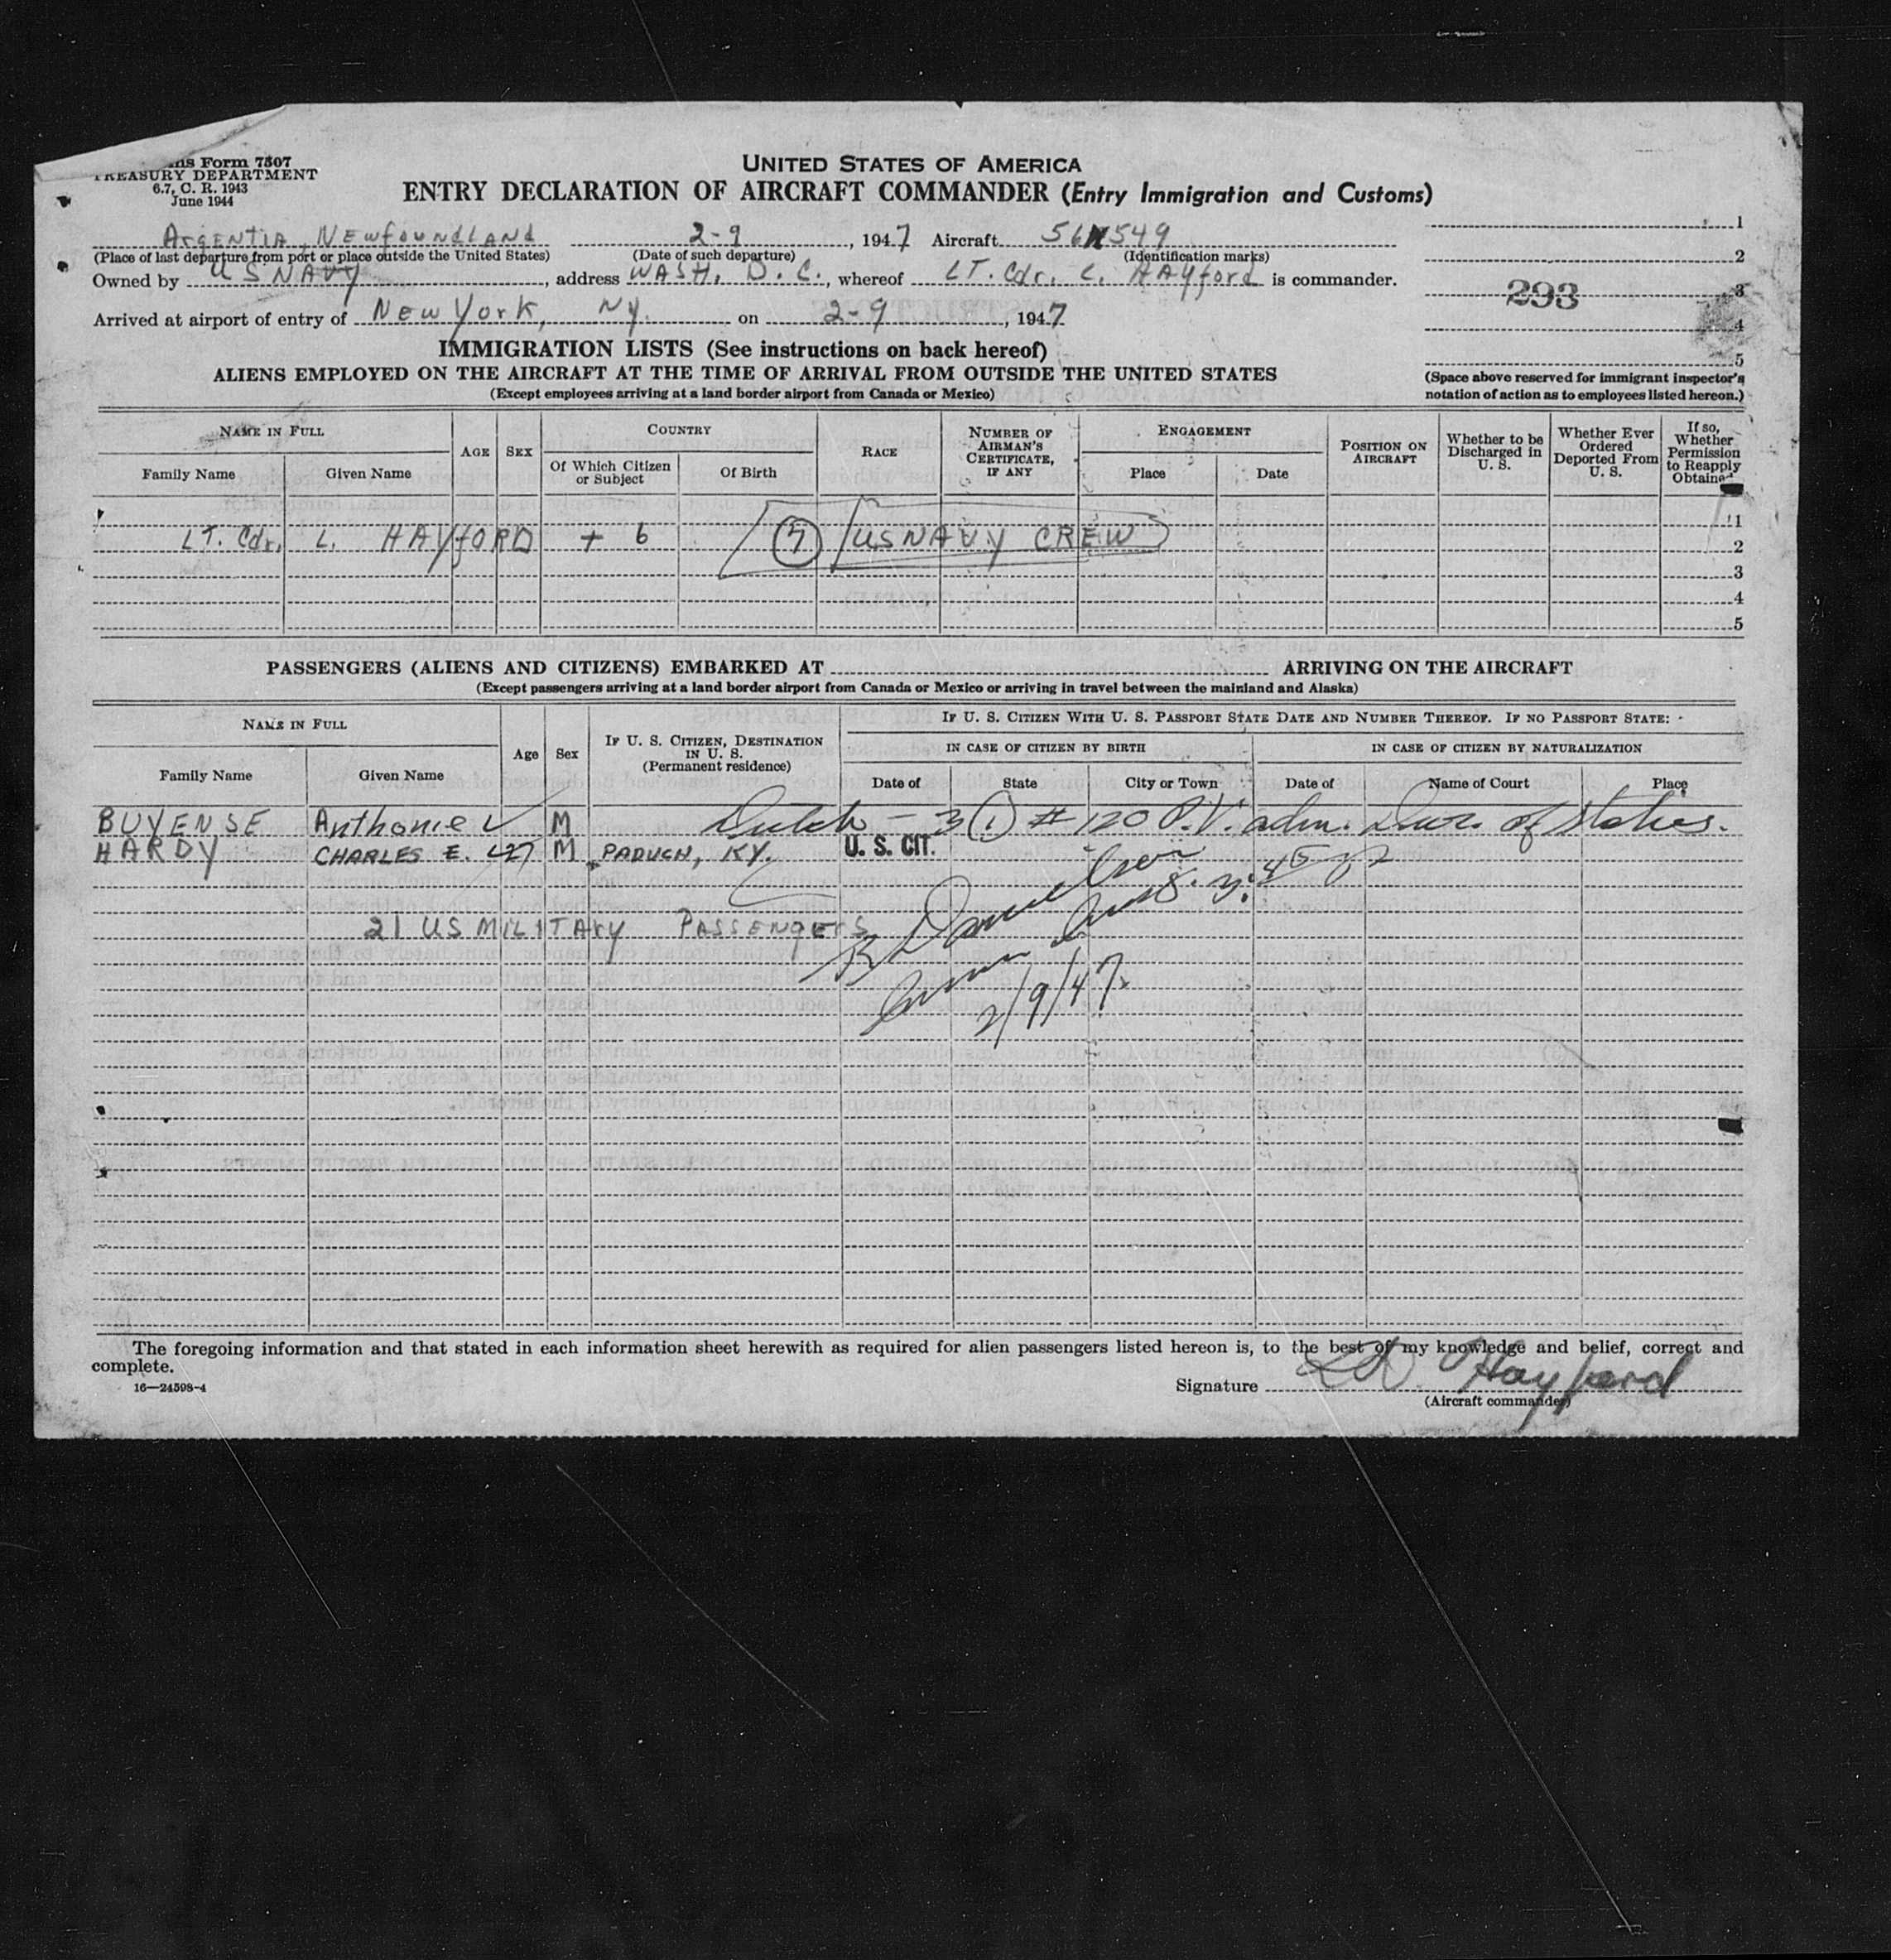 ns Form 7507
TREASURY DEPARTMENT
6.7, C. R. 1943
June 1944
UNITED STATES OF AMERICA
ENTRY DECLARATION OF AIRCRAFT COMMANDER (Entry Immigration and Customs)
Argentia, Newfoundland 2-9, 1947 Aircraft 56 549
(Place of last departure from port or place outside the United States) (Date of such departure) (Identification marks)
Owned by US NAVY, address WASH. D.C., whereof LT. Cdr. L. HAYford is commander.
Arrived at airport of entry of New York, NY. on 2-9, 1947
1
2
293 3
4
5
(Space above reserved for immigrant inspector's notation of action as to employees listed hereon.)
IMMIGRATION LISTS (See instructions on back hereof)
ALIENS EMPLOYED ON THE AIRCRAFT AT THE TIME OF ARRIVAL FROM OUTSIDE THE UNITED STATES
(Except employees arriving at a land border airport from Canada or Mexico)
NAME IN FULL
Family Name Given Name
AGE SEX
COUNTRY
Of Which Citizen or Subject Of Birth
RACE
NUMBER OF AIRMAN'S CERTIFICATE, IF ANY
ENGAGEMENT
Place Date
POSITION ON AIRCRAFT
Whether to be Discharged in U. S.
Whether Ever Ordered Deported From U. S.
If so, Whether Permission to Reapply Obtained
1
LT. Cdr. L. HAYfORD + 6 7 US NAVY CREW 2
3
4
5
PASSENGERS (ALIENS AND CITIZENS) EMBARKED AT ARRIVING ON THE AIRCRAFT
(Except passengers arriving at a land border airport from Canada or Mexico or arriving in travel between the mainland and Alaska)
NAME IN FULL
Family Name Given Name
Age Sex
IF U. S. CITIZEN, DESTINATION IN U. S.
(Permanent residence)
IF U. S. CITIZEN WITH U. S. PASSPORT STATE DATE AND NUMBER THEREOF. IF NO PASSPORT STATE:
IN CASE OF CITIZEN BY BIRTH IN CASE OF CITIZEN BY NATURALIZATION
Date of State City or Town Date of Name of Court Place
BUYENSE Anthonie M Dutch - 3(1) # 120 P.V. adm. of status.
HARDY CHARLES E. 27 M PADUCH, KY. U. S. CIT.
21 US MILITAry PASSENgErS
2/9/47
The foregoing information and that stated in each information sheet herewith as required for alien passengers listed hereon is, to the best of my knowledge and belief, correct and
complete.
16—24598-4
Signature Hayford
(Aircraft commander)